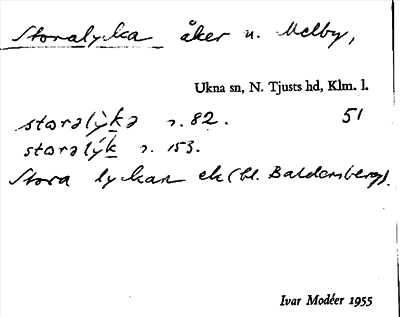 Storalycka åker n. Melby,
Ukna sn, N. Tjusts hd, Klm. l.
storalyka s. 82. 51
storalyk s. 153.
Stora lyckan ek (bl. Baldersberg).
Ivar Modéer 1955